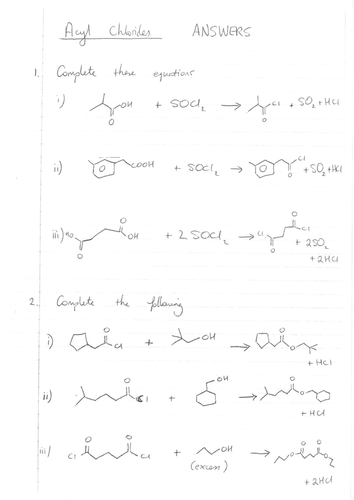 Acyl Chlorides ANSWERS
1. Complete these equations
i) OH O + SOCl2 → Cl O + SO2 + HCl
ii) COOH + SOCl2 → Cl O + SO2 + HCl
iii) HO O O OH + 2 SOCl2 → Cl O O Cl + 2SO2 + 2HCl
2. Complete the following
i) O Cl + OH → O O + HCl
ii) O Cl + OH → O O + HCl
iii) Cl O O Cl + OH (excess) → O O O O + 2HCl